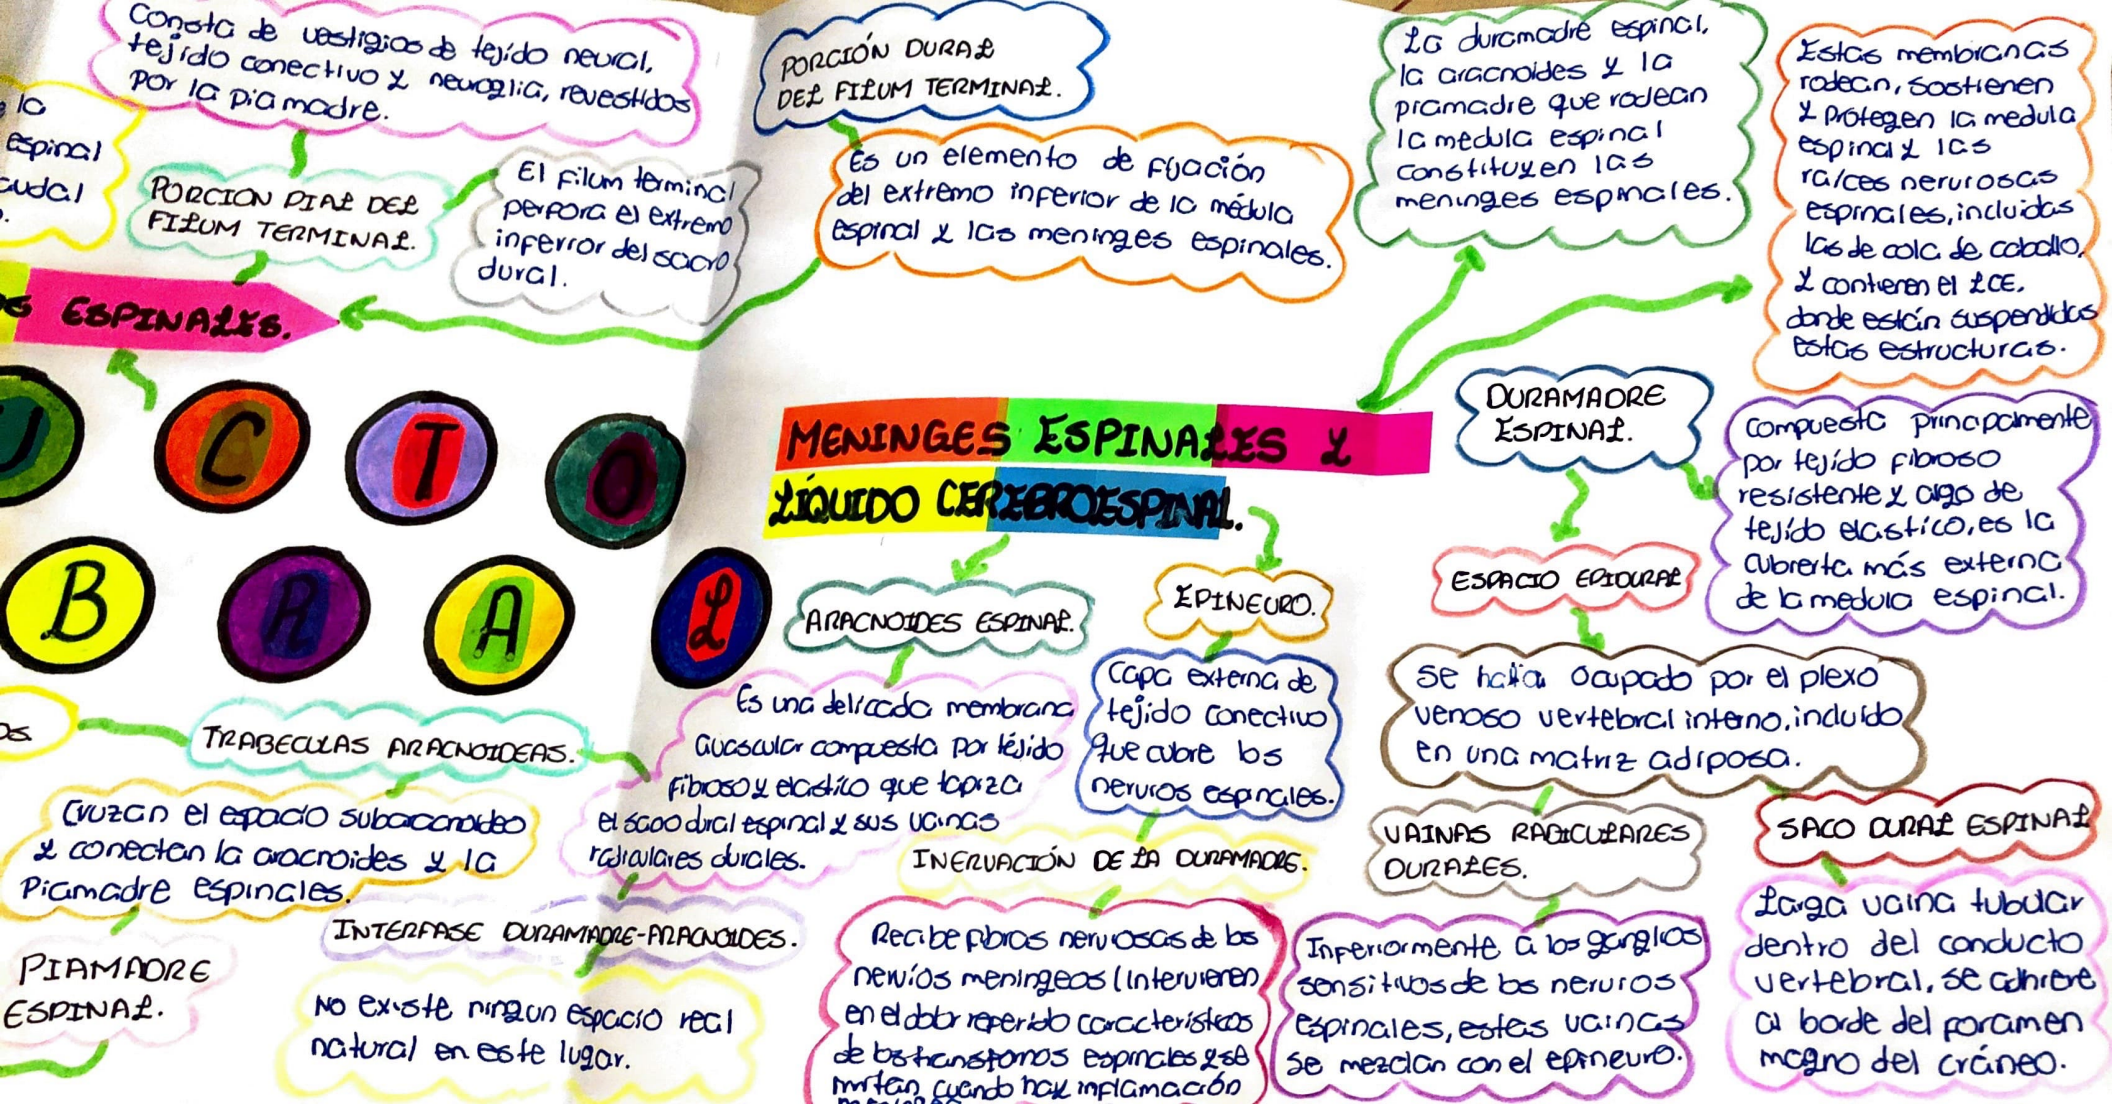 Consta de vestigios de tejido neural,
tejido conectivo y neuroglia, revestidos
por la piamadre.
la
espinal
caudal
PORCION PIAL DEL
FILUM TERMINAL.
El filum terminal
perfora el extremo
inferior del sacro
dural.
PORCIÓN DURAL
DEL FILUM TERMINAL.
Es un elemento de fijación
del extremo inferior de la médula
espinal y las meninges espinales.
La duramadre espinal,
la aracnoides y la
piamadre que rodean
la medula espinal
constituyen las
meninges espinales.
Estas membranas
rodean, sostienen
y protegen la medula
espinal y las
raíces nerviosas
espinales, incluidas
las de cola de caballo,
y contienen el LCE,
donde están suspendidas
estas estructuras.
ESPINALES.
U C T O
B R A L
MENINGES ESPINALES Y
LÍQUIDO CEREBROESPINAL.
DURAMADRE
ESPINAL.
Compuesta principamente
por tejido fibroso
resistente y algo de
tejido elastico, es la
cubierta más externa
de la medula espinal.
ESPACIO EPIDURAL
Se halla ocupado por el plexo
venoso vertebral interno, incluído
en una matriz adiposa.
ARACNOIDES ESPINAL.
Es una delicada membrana
avascular compuesta por tejido
fibroso y elastico que tapiza
el saco dural espinal y sus vainas
radiculares durales.
EPINEURO.
Capa externa de
tejido conectivo
que cubre los
nervios espinales.
TRABECULAS ARACNOIDEAS.
Cruzan el espacio subaracnoideo
y conectan la aracnoides y la
Piamadre espinales.
INTERFASE DURAMADRE-ARACNOIDES.
No existe ningun espacio real
natural en este lugar.
PIAMADRE
ESPINAL.
INERVACIÓN DE LA DURAMADRE.
Recibe fibras nerviosas de los
nervios meningeos (intervienen
en el dolor referido característicos
de los transtornos espinales y se
irritan cuando hay inflamación
VAINAS RADICULARES
DURALES.
Inferiormente a los ganglios
sensitivos de los nervios
espinales, estas vainas
se mezclan con el epineuro.
SACO DURAL ESPINAL
Larga vaina tubular
dentro del conducto
vertebral, se adhiere
al borde del foramen
magno del cráneo.